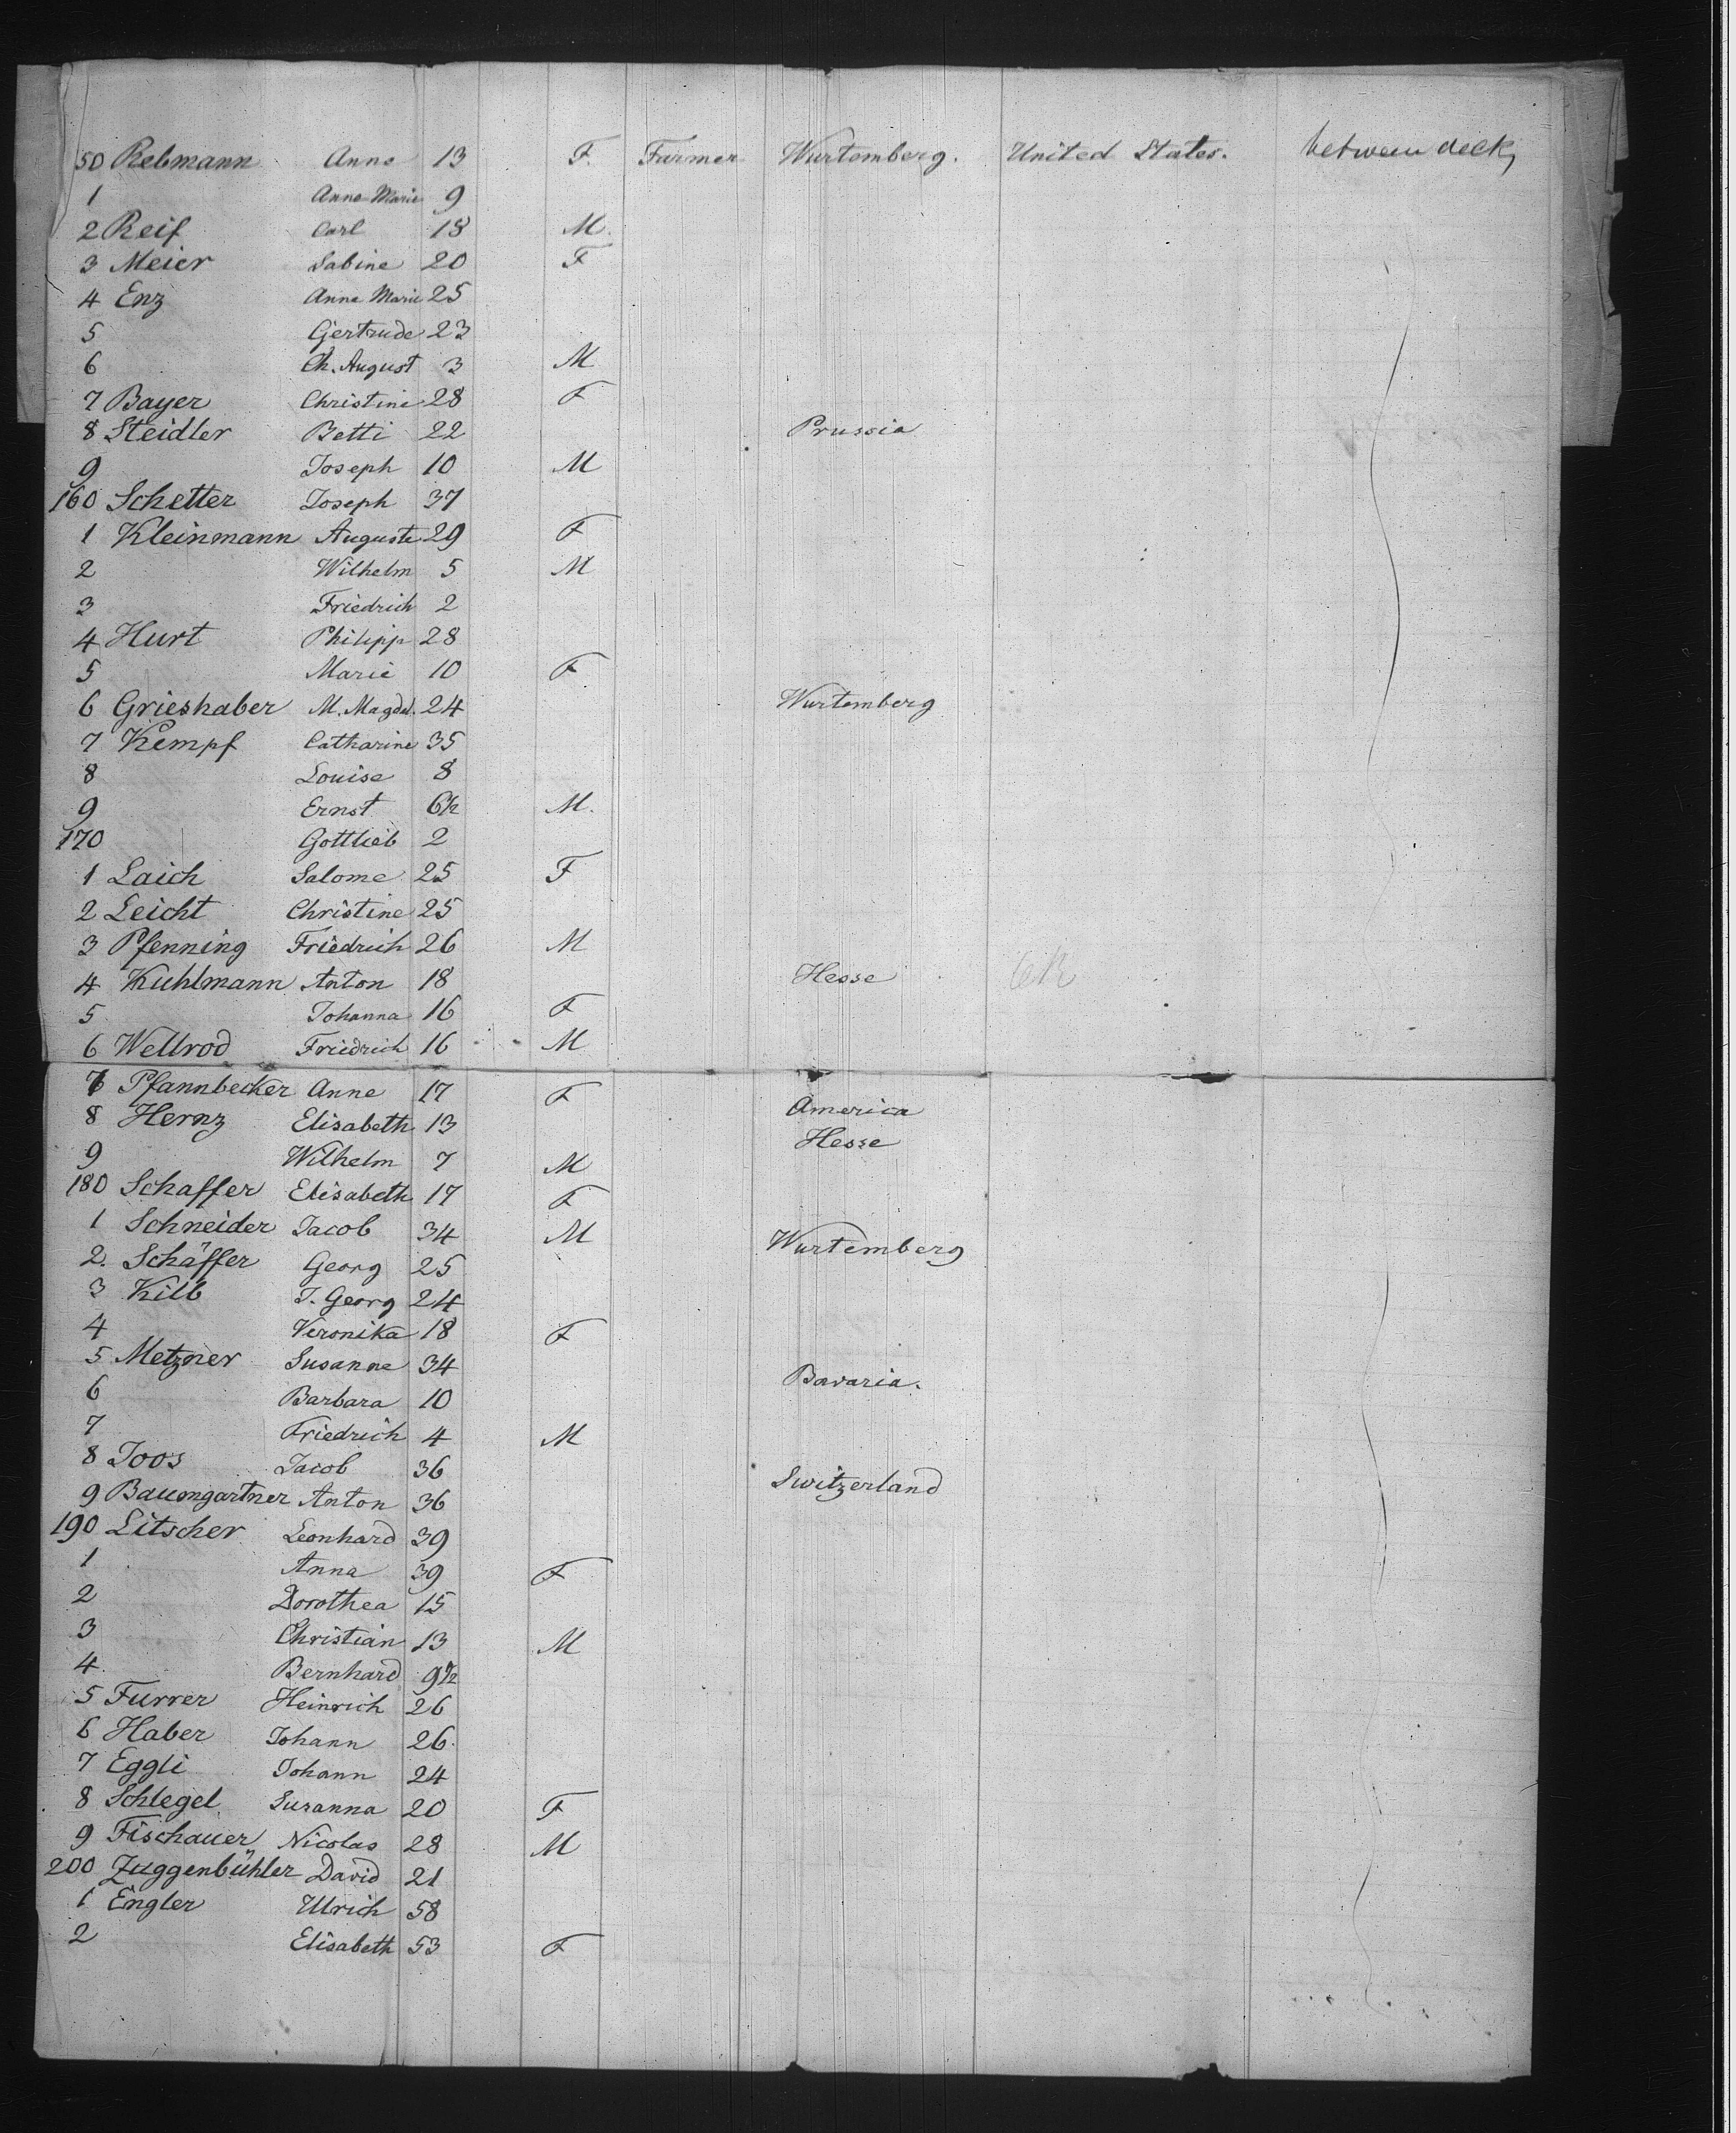 50 Rebmann Anne 13 F. Farmer Wurtemberg. United States. between deck,
1 Anne Marie 9
2 Reif Carl 18 M.
3 Meier Sabine 20 F
4 Enz Anne Marie 25
5 Gertrude 23
6 Ch. August 3 M
7 Bayer Christine 28 F
8 Steidler Betti 22 Prussia
9 Joseph 10 M
160 Schetter Joseph 37
1 Kleinmann Auguste 29 F
2 Wilhelm 5 M
3 Friedrich 2
4 Hurt Philipp 28
5 Marie 10 F
6 Grieshaber M. Magdal. 24 Wurtemberg
7 Kempf Catharine 35
8 Louise 8
9 Ernst 6½ M.
170 Gottlieb 2
1 Laich Salome 25 F
2 Leicht Christine 25
3 Pfenning Friedrich 26 M
4 Kuhlmann Anton 18 Hesse
5 Johanna 16 F
6 Wellrod Friedrich 16 M
7 Pfannbecker Anne 17 F America
8 Hernz Elisabeth 13 Hesse
9 Wilhelm 7 M
180 Schaffer Elisabeth 17 F
1 Schneider Jacob 34 M Wurtemberg
2. Schäffer Georg 25
3 Kilb J. Georg 24
4 Veronika 18 F
5 Metzner Susanne 34 Bavaria.
6 Barbara 10
7 Friedrich 4 M
8 Joos Jacob 36 Switzerland
9 Baumgartner Anton 36
190 Litscher Leonhard 39
1 Anna 39 F
2 Dorothea 15
3 Christian 13 M
4 Bernhard 9½
5 Furrer Heinrich 26
6 Haber Johann 26.
7 Eggli Johann 24
8 Schlegel Susanna 20 F
9 Fischauer Nicolas 28 M
200 Zuggenbühler David 21
1 Engler Ulrich 58
2 Elisabeth 53 F